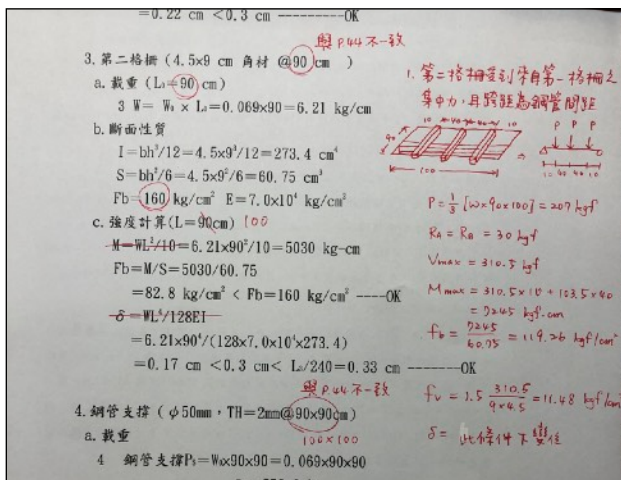 =0.22 cm <0.3 cm ---------OK
與P.44不一致
3.第二格柵 (4.5x9 cm 角材 @90 cm )
a.載重(L₁=90 cm)
3 W= W₀ x L₁=0.069x90=6.21 kg/cm
b.斷面性質
I=bh³/12=4.5x9³/12=273.4 cm⁴
S=bh²/6=4.5x9²/6=60.75 cm³
Fb=160 kg/cm² E=7.0x10⁴ kg/cm²
c.強度計算(L=90cm) 100
M=WL²/10=6.21x90²/10=5030 kg-cm
Fb=M/S=5030/60.75
=82.8 kg/cm² < Fb=160 kg/cm² ----OK
δ=WL⁴/128EI
=6.21x90⁴/(128x7.0x10⁴x273.4)
=0.17 cm <0.3 cm< L₂/240=0.33 cm -------OK
與P.44不一致
4.鋼管支撐(φ50mm,TH=2mm@90x90cm)
100x100
a.載重
4 鋼管支撐P₅=W₀x90x90=0.069x90x90
1. 第二格柵受到來自第一格柵之
集中力,且跨距為鋼管間距
10 40 40 10
P P P
90
10 40 40 10
100
P=1/3[w×90×100]=207 kgf
RA=RB=30 kgf
Vmax=310.5 kgf
Mmax=310.5×10+103.5×40
=7245 kgf.cm
fb=7245/60.75=119.26 kgf/cm²
fv=1.5 310.5/9×4.5=11.48 kgf/cm²
δ= 此條件下變位